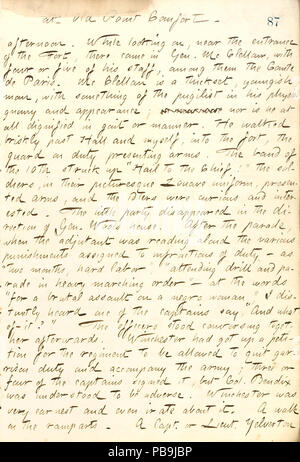 at Old Point Comfort —
87
afternoon. While looking on, near the entrance
of the Fort, there came in Gen. Mc Clellan, with
four or five of his staff, among them the Comte
de Paris. Mc Clellan is a thickset, youngish
man, with something of the pugilist in his physiog
-nomy and appearance; nor is he at
all dignified in gait or manner. He walked
briskly past Hall and myself, into the fort, the
guard on duty presenting arms. The band of
the 10th struck up "Hail to the Chief;" the sol-
diers, in their picturesque Zouave uniform, presen-
ted arms, and the officers were curious and inter-
ested. The little party disappeared in the di-
rection of Gen. Wool's house. After the parade,
when the adjutant was reading aloud the various
punishments assigned to infractions of duty — as
"two months, hard labor" "attending drill and pa-
rade in heavy marching order" — at the words
"for a brutal assault on a negro woman," I dis-
tinctly heard one of the captains say "And what
of it?" The officers stood canvassing toget
her afterwards. Winchester had got up a peti-
tion for the regiment to be allowed to quit gar-
rison duty and accompany the army; three or
four of the captains signed it, but Col. Bendix
was understood to be adverse. Winchester was
very earnest and even irate about it. A walk
on the ramparts. A Capt. or Lieut. Yelverton
alamy
Image ID: PB9JBP
www.alamy.com